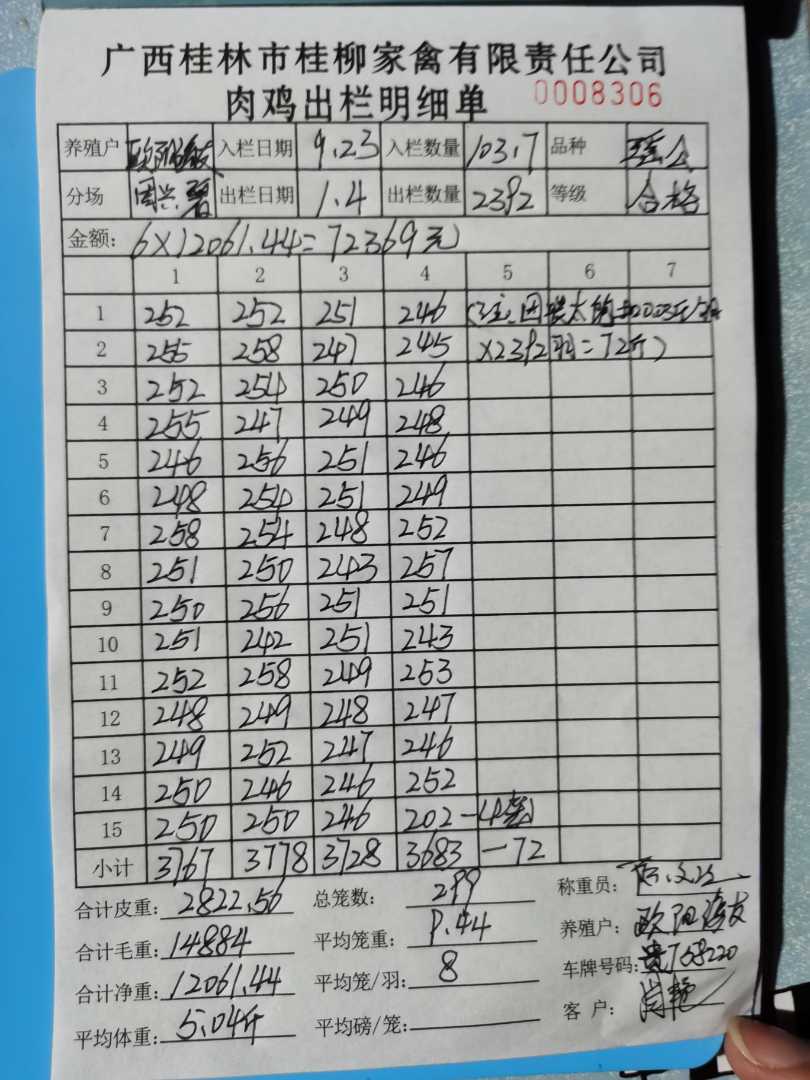 广西桂林市桂柳家禽有限责任公司
肉鸡出栏明细单 0008306
养殖户 入栏日期 9.23 入栏数量 103.7 品种 瑶公
分场 周兴碧 出栏日期 1.4 出栏数量 2392 等级 合格
金额: 6×12061.44=72369元
1 2 3 4 5 6 7
1 252 252 251 246 (注:因 太
2 255 258 247 245 ×2392羽=72斤)
3 252 254 250 246
4 255 247 249 248
5 246 256 251 246
6 248 254 251 249
7 258 254 248 252
8 251 250 243 257
9 250 256 251 251
10 251 242 251 243
11 252 258 249 253
12 248 249 248 247
13 249 252 247 246
14 250 246 246 252
15 250 250 246 202-(4笼)
小计 3767 3778 3728 3683 -72
合计皮重: 2822.56 总笼数: 299 称重员:
合计毛重: 14884 平均笼重: 9.44 养殖户: 欧阳
合计净重: 12061.44 平均笼/羽: 8 车牌号码: 58220
平均体重: 5.04斤 平均磅/笼: 客户: 肖艳